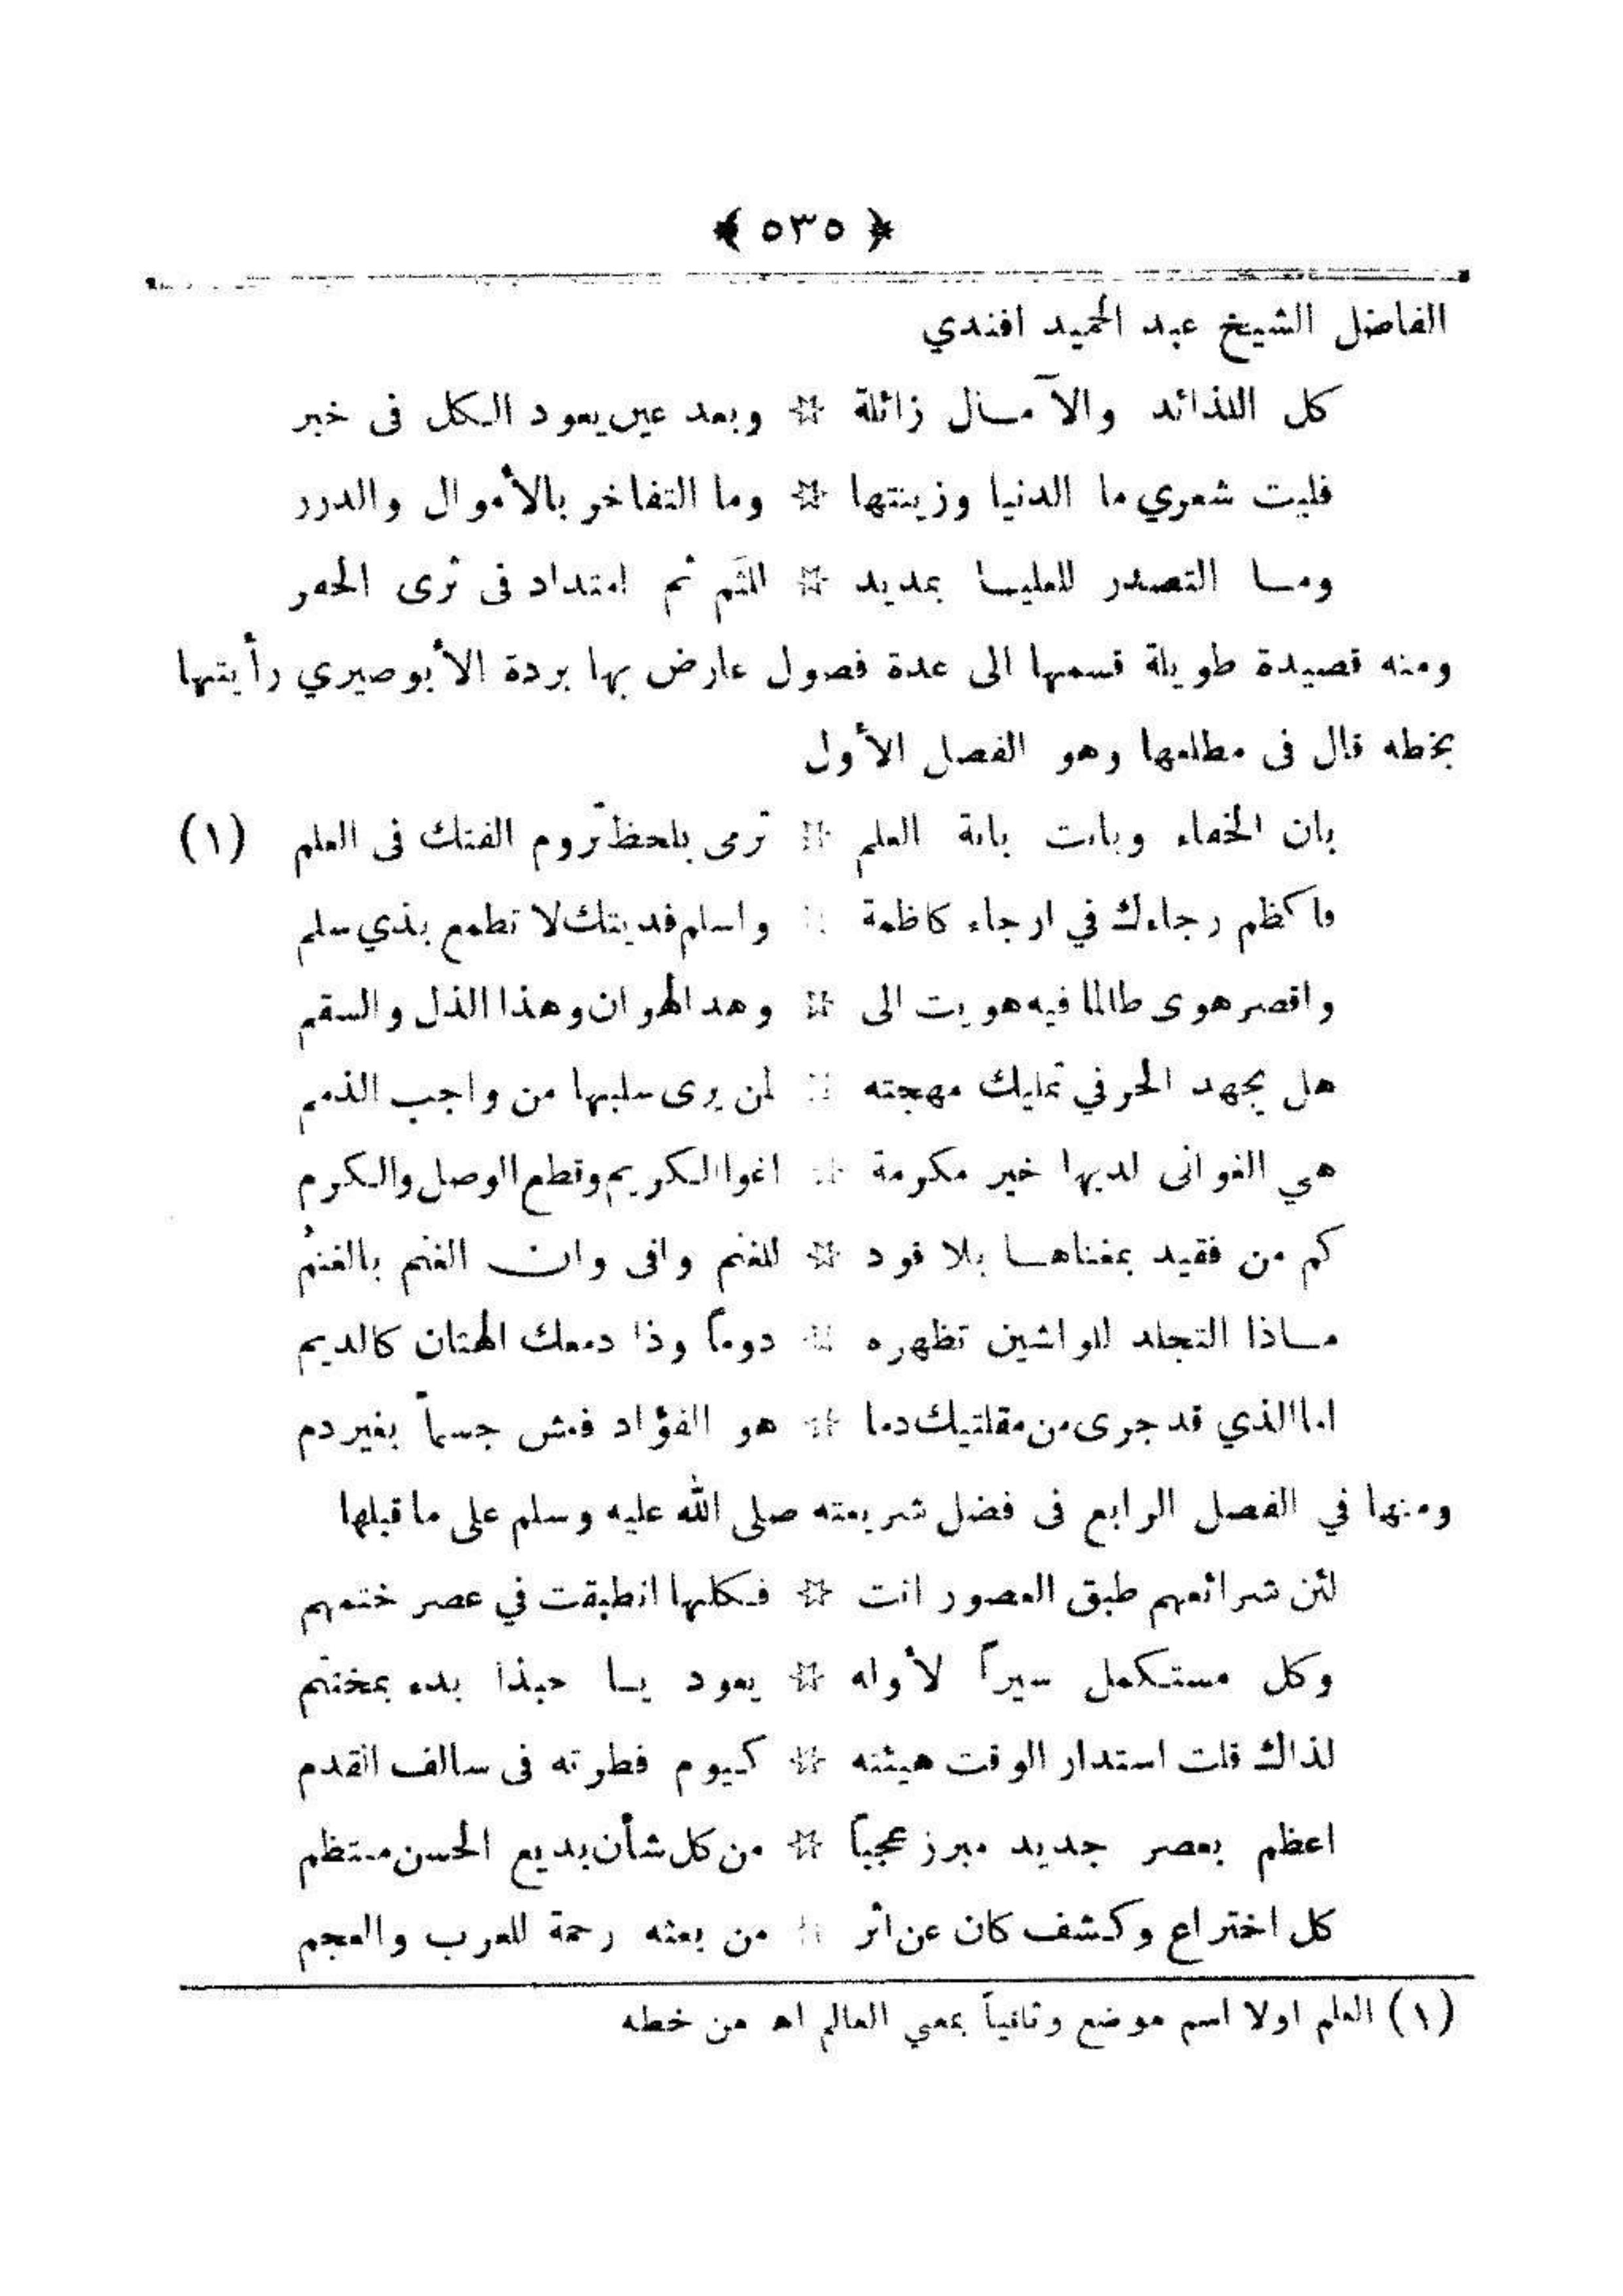 ﴿ ٥٣٥ ﴾
الفاضل الشيخ عبد الحميد افندي
كل اللذائد والآمال زائلة * وبعد عين يعود الكل فى خبر
فليت شعري ما الدنيا وزينتها * وما التفاخر بالأموال والدرر
وما التصدر للعليا بمديد * اللثم ثم امتداد فى ثرى الحفر
ومنه قصيدة طويلة قسمها الى عدة فصول عارض بها بردة الأبوصيري رأيتها
بخطه قال فى مطلعها وهو الفصل الأول
بان الخفاء وبانت بانة العلم * ترمى بلحظ تروم الفتك فى العلم (١)
فاكظم رجاءك في ارجاء كاظمة * واسلم فديتك لا تطمع بذي سلم
واقصر هوى طالما فيه هويت الى * وهد الهوان وهذا الذل والسقم
هل يجهد الحر في تمليك مهجته * لمن يرى سلبها من واجب الذمم
هي الغوانى لديها خير مكرمة * اغوا الكريم وقطع الوصل والكرم
كم من فقيد بمغناها بلا قود * للغنم وافى وان الغنم بالغنمُ
ماذا التجلد للواشين تظهره * دوماً وذا دمعك الهتان كالديم
اما الذي قد جرى من مقلتيك دما * هو الفؤاد فعش جسماً بغير دم
ومنها في الفصل الرابع فى فضل شريعته صلى الله عليه وسلم على ما قبلها
لئن شرائعهم طبق العصور اتت * فكلها انطبقت في عصر ختمهم
وكل مستكمل سيراً لأوله * يعود يا حبذا بدء بمختتم
لذاك قلت استدار الوقت هيئته * كيوم فطرته فى سالف القدم
اعظم بعصر جديد مبرز عجباً * من كل شأن بديع الحسن منتظم
كل اختراع وكشف كان عن اثر * من بعثه رحمة للعرب والعجم
(١) العلم اولا اسم موضع وثانياً بمعنى العالم اه من خطه